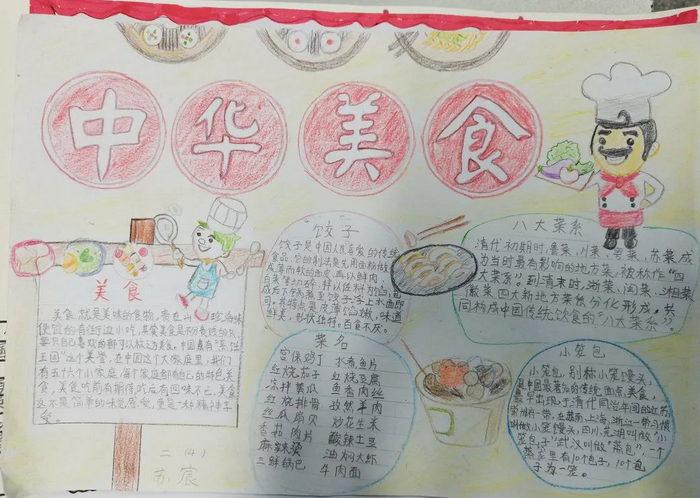 中华美食
美食
美食就是美味的食物,贵在山珍海味
便宜的有街边小吃,其实美食是不分贵贱的只
要只自己喜欢的都可以称之为美食。中国素有"烹饪
王国"这个美誉。在中国这个大家庭里,我们
有五十六个小家庭,每个家庭都有自己的特色美
食,美食吃前有期待,吃后有回味不已,美食
这不是简单的味觉感受,更是一种精神享
受。
二(4)
苏宸
饺子
饺子是中国人民喜爱的传统
食品。它的制法是先用面粉做成
薄而软的面皮,再以鲜肉、
白菜等切碎,拌以佐料为馅,包
成后下锅煮至饺子浮上水面即
可。其特点是皮薄馅嫩,味道
鲜美,形状独特,百食不厌。
八大菜系
清代初期时,鲁菜、川菜、粤菜、苏菜成
为当时最有影响的地方菜,被称作"四
大菜系"。到清末时,浙菜、闽菜、湘菜、
徽菜四大新地方菜系分化形成,共
同构成中国传统饮食的"八大菜系"。
菜名
宫保鸡丁 水煮鱼片
红烧茄子 红烧豆腐
凉拌黄瓜 鱼香肉丝
红烧排骨 孜然羊肉
丝瓜扇贝 炒花生米
香菇肉片 酸辣土豆
麻辣烫 油焖大虾
三鲜锅巴 牛肉面
小笼包
小笼包,别称小笼馒头,
是中国著名的传统面点美食,
最早出现于清代同治年间的江苏
常州一带。在苏锡、上海、浙江一带习惯
叫做小笼馒头,四川、芜湖叫做"小
笼包子",武汉叫做"蒸包",一个
蒸笼里有10个包子,10个包
子为一笼。